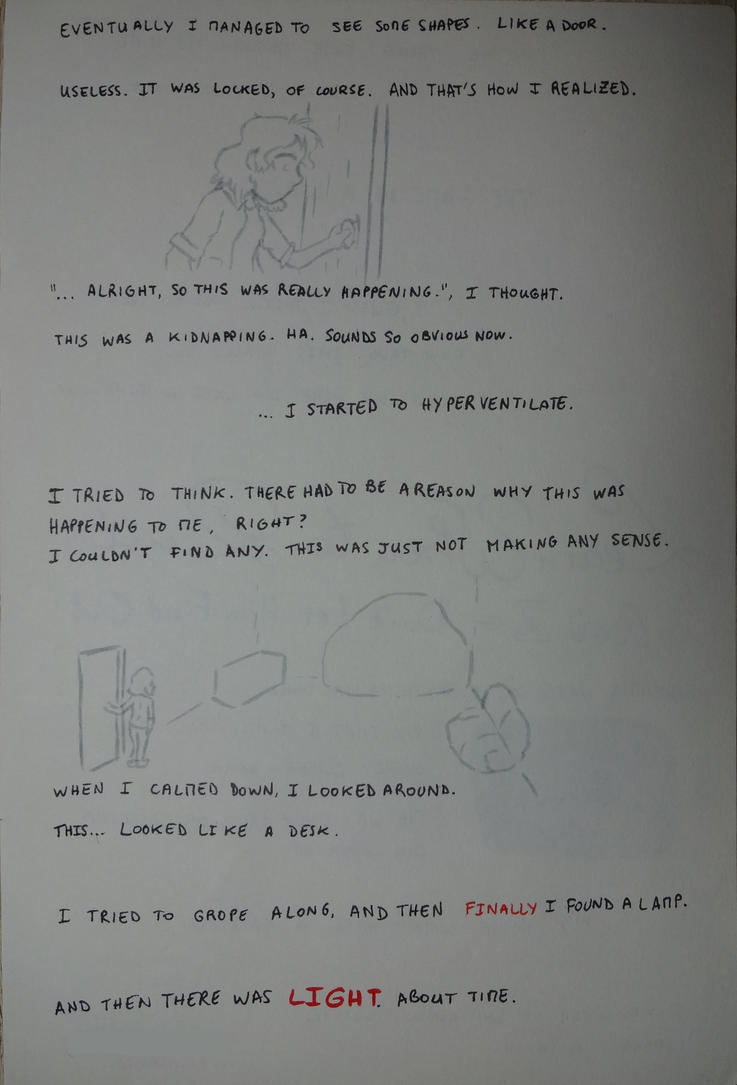 EVENTUALLY I MANAGED TO SEE SOME SHAPES. LIKE A DOOR.
USELESS. IT WAS LOCKED, OF COURSE. AND THAT'S HOW I REALIZED.
"... ALRIGHT, SO THIS WAS REALLY HAPPENING.", I THOUGHT.
THIS WAS A KIDNAPPING. HA. SOUNDS SO OBVIOUS NOW.
... I STARTED TO HYPERVENTILATE.
I TRIED TO THINK. THERE HAD TO BE A REASON WHY THIS WAS
HAPPENING TO ME, RIGHT?
I COULDN'T FIND ANY. THIS WAS JUST NOT MAKING ANY SENSE.
WHEN I CALMED DOWN, I LOOKED AROUND.
THIS... LOOKED LIKE A DESK.
I TRIED TO GROPE ALONG, AND THEN FINALLY I FOUND A LAMP.
AND THEN THERE WAS LIGHT. ABOUT TIME.